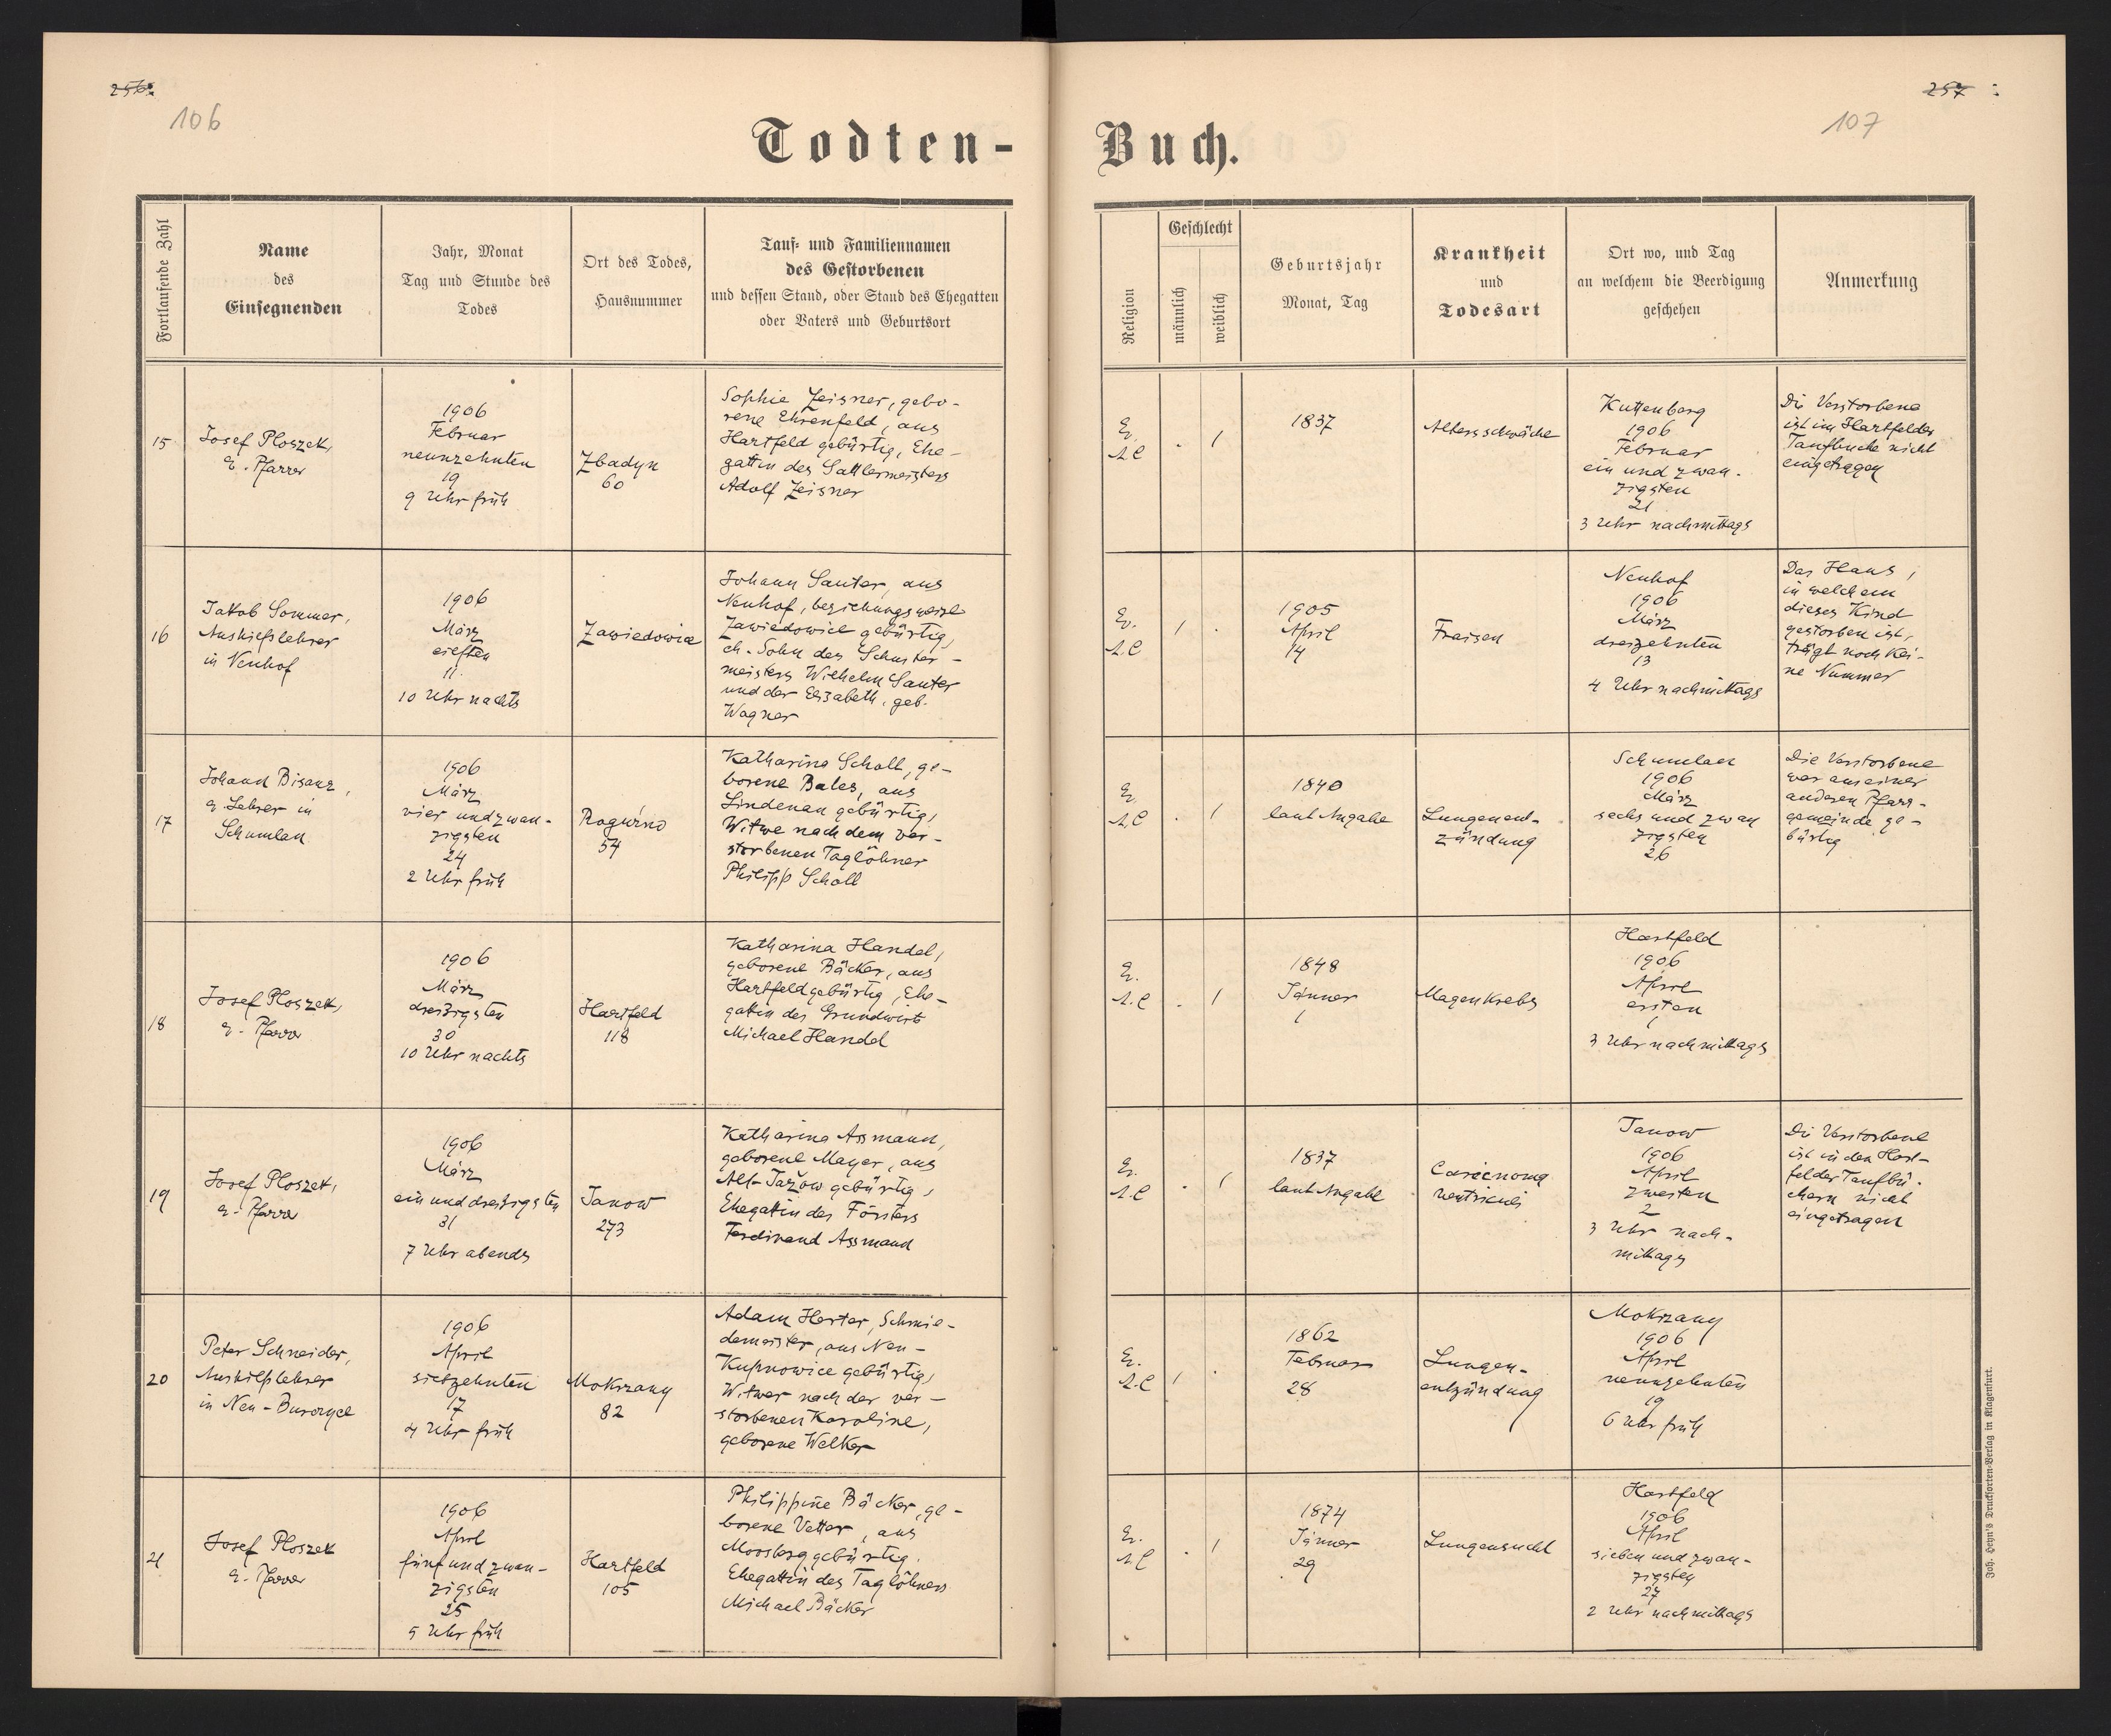 256
106
Todten-
Fortlaufende Zahl
Name
des
Einsegnenden
Jahr, Monat
Tag und Stunde des
Todes
Ort des Todes,
Hausnummer
Tauf- und Familiennamen
des Gestorbenen
und dessen Stand, oder Stand des Ehegatten
oder Vaters und Geburtsort
15
Josef Ploszek,
e. Pfarrer
1906
Februar
neunzehnten
19
9 Uhr früh
Zbadyn
60
Sophie Zeisner, gebo-
rene Ehrenfeld, aus
Hartfeld gebürtig, Ehe-
gattin des Sattlermeisters
Adolf Zeisner
16
Jakob Sommer,
Aushilfslehrer
in Neuhof
1906
März
eilften
11
10 Uhr nachts
Zawiedowice
Johann Sauter, aus
Neuhof, beziehungsweise
Zawiedowice gebürtig,
eh. Sohn des Schuster-
meisters Wilhelm Sauter
und der Elisabeth, geb.
Wagner
17
Johann Bisanz,
e. Lehrer in
Schumlau
1906
März
vier und zwan-
zigsten
24
2 Uhr früh
Rogużno
54
Katharina Scholl, ge-
borene Bales, aus
Lindenau gebürtig,
Witwe nach dem ver-
storbenen Taglöhner
Philipp Scholl
18
Josef Ploszek,
e. Pfarrer
1906
März
dreißigsten
30
10 Uhr nachts
Hartfeld
118
Katharina Handel,
geborene Bäcker, aus
Hartfeld gebürtig, Ehe-
gattin des Grundwirts
Michael Handel
19
Josef Ploszek,
e. Pfarrer
1906
März
ein und dreißigsten
31
7 Uhr abends
Janow
273
Katharina Assmann,
geborene Mayer, aus
Alt-Jażow gebürtig,
Ehegattin des Försters
Ferdinand Assmann
20
Peter Schneider,
Aushilfslehrer
in Neu-Burczyce
1906
April
siebzehnten
17
4 Uhr früh
Mokrzany
82
Adam Herter, Schmie-
demeister, aus Neu-
Kupnowice gebürtig,
Witwer nach der ver-
storbenen Karoline,
geborene Welker
21
Josef Ploszek
e. Pfarrer
1906
April
fünf und zwan-
zigsten
25
5 Uhr früh
Hartfeld
105
Philippine Bäcker, ge-
borene Vetter, aus
Moosberg gebürtig.
Ehegattin des Taglöhners
Michael Bäcker
257
107
Buch.
Religion
Geschlecht
männlich
weiblich
Geburtsjahr
Monat, Tag
Krankheit
und
Todesart
Ort wo, und Tag
an welchem die Beerdigung
geschehen
Anmerkung
Ev.
A.C
1
1837
Altersschwäche
Kuttenberg
1906
Februar
ein und zwan-
zigsten
21
3 Uhr nachmittags
Die Verstorbene
ist im Hartfelder
Taufbuche nicht
eingetragen
Ev.
A.C
1
1905
April
14
Fraisen
Neuhof
1906
März
dreizehnten
13
4 Uhr nachmittags
Das Haus,
in welchem
dieses Kind
gestorben ist,
trägt noch kei-
ne Nummer
Ev.
A.C
1
1840
laut Angabe
Lungenent-
zündung
Schumlau
1906
März
sechs und zwan
zigsten
26
Die Verstorbene
war aus einer
anderen Pfarr-
gemeinde ge-
bürtig
Ev.
A.C
1
1848
Jänner
1
Magenkrebs
Hartfeld
1906
April
ersten
1
3 Uhr nachmittags
Ev.
A.C
1
1837
laut Angabe
Carcinoma
ventriculi
Janow
1906
April
zweiten
2
3 Uhr nach-
mittags
Die Verstorbene
ist in den Hart-
felder Taufbü-
chern nicht
eingetragen
Ev.
A.C
1
1862
Februar
28
Lungen-
entzündung
Mokrzany
1906
April
neunzehnten
19
6 Uhr früh
Ev.
A.C
1
1874
Jänner
29
Lungensucht
Hartfeld
1906
April
sieben und zwan-
zigsten
27
2 Uhr nachmittags
Joh. Heyn's Drucksorten-Verlag in Klagenfurt.